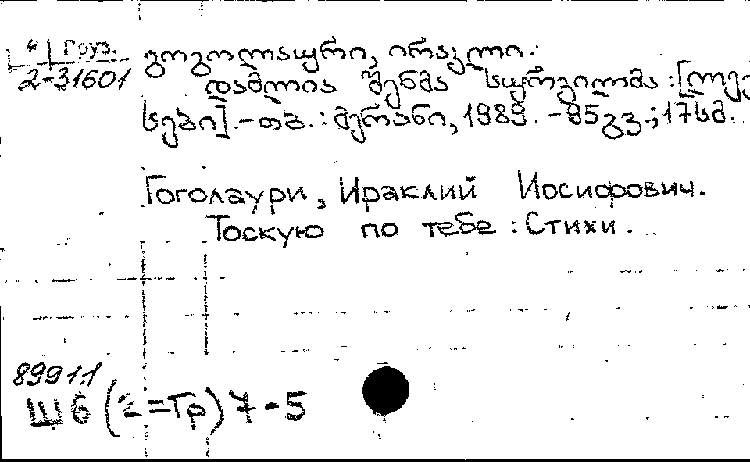 4 Груз.
2-31601
გოგოლაური, ირაკლი.
დამლია შენმა სურვილმა : [ლექ
სები]. - თბ. : მერანი, 1989. - 95გვ.; 17სმ.
Гоголаури, Ираклий Иосифович.
Тоскую по тебе : Стихи.
8991.1
Ш6(2=Гр)7-5